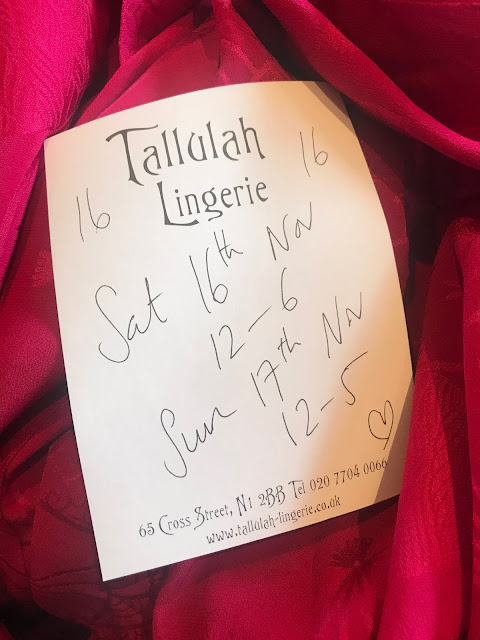 Tallulah
Lingerie
16
16
Sat 16th Nov
12-6
Sun 17th Nov
12-5
65 Cross Street, N1 2BB Tel 020 7704 0066
www.tallulah-lingerie.co.uk